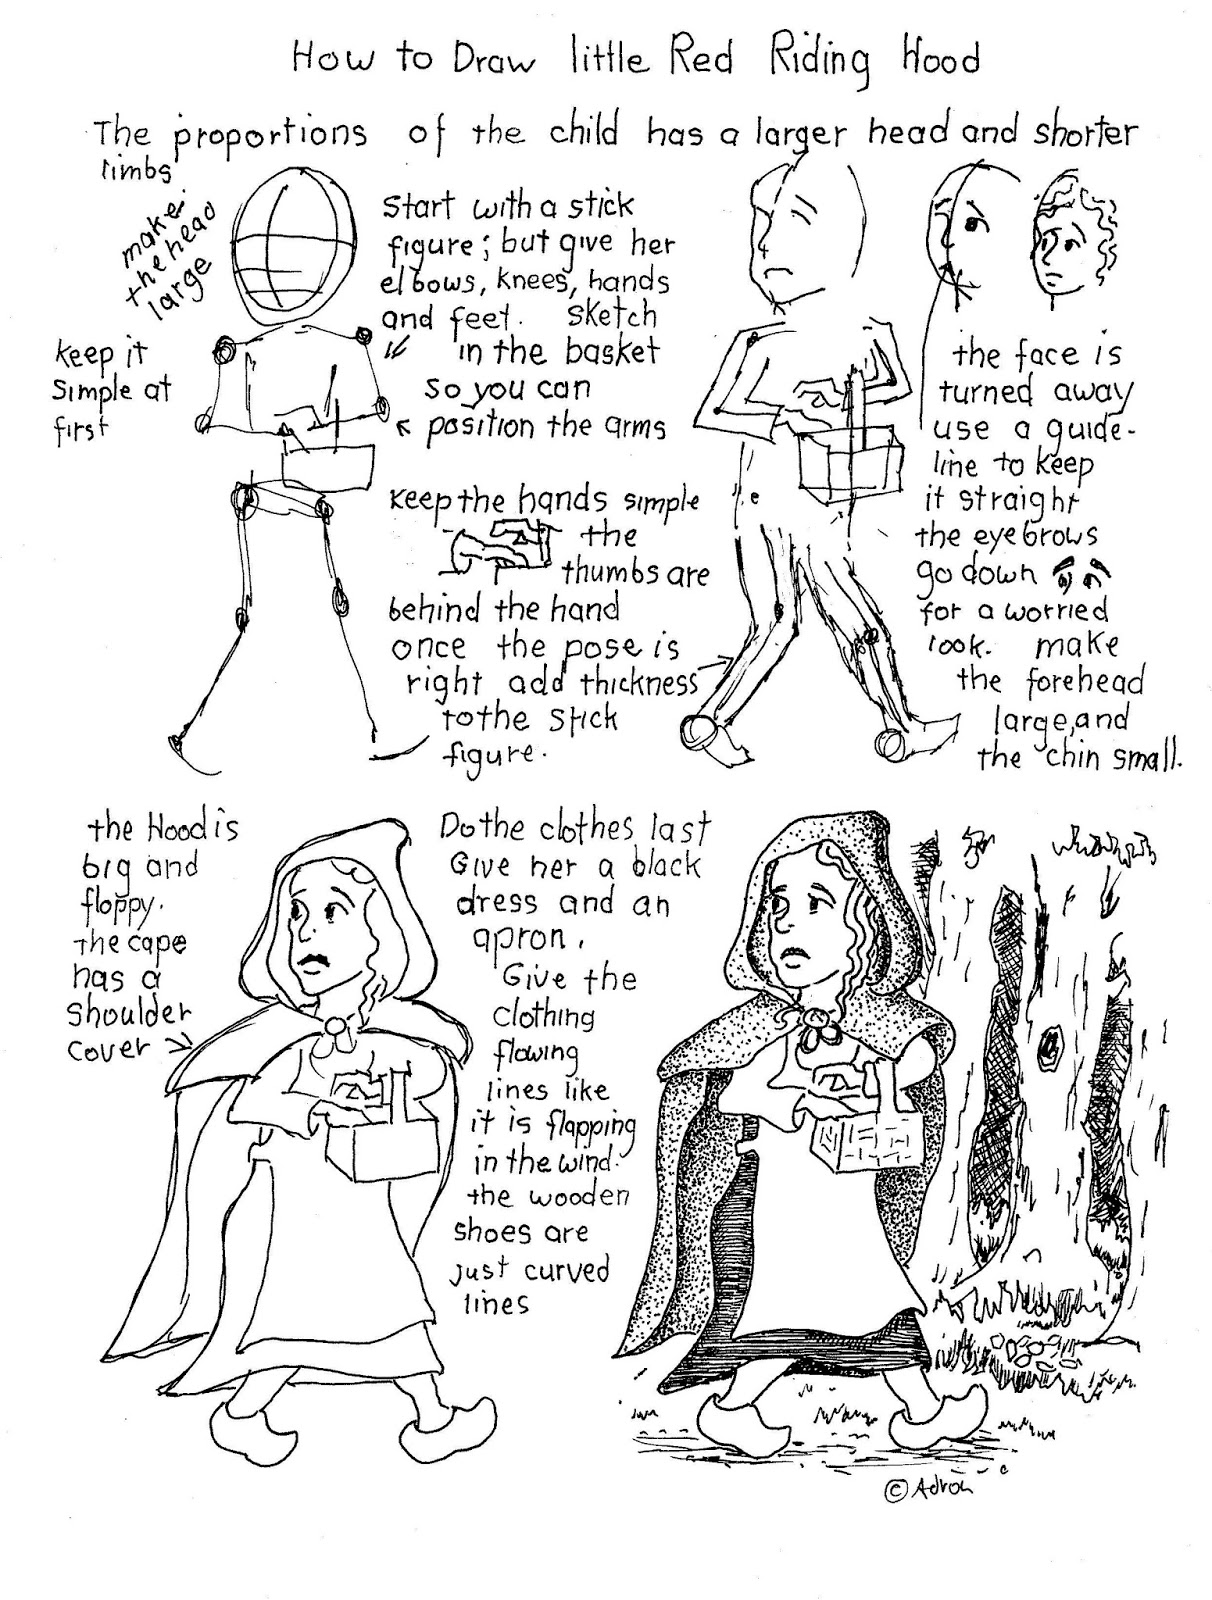 How to Draw little Red Riding Hood
The proportions of the child has a larger head and shorter
limbs
make
the head
large
keep it
simple at
first
Start with a stick
figure; but give her
elbows, knees, hands
and feet. sketch
in the basket
so you can
position the arms
keep the hands simple
the
thumbs are
behind the hand
once the pose is
right add thickness
to the stick
figure.
the face is
turned away
use a guide-
line to keep
it straight
the eyebrows
go down
for a worried
look. make
the forehead
large, and
the chin small.
the Hood is
big and
floppy.
The cape
has a
shoulder
cover
Do the clothes last
Give her a black
dress and an
apron.
Give the
clothing
flowing
lines like
it is flapping
in the wind.
the wooden
shoes are
just curved
lines
© Adron